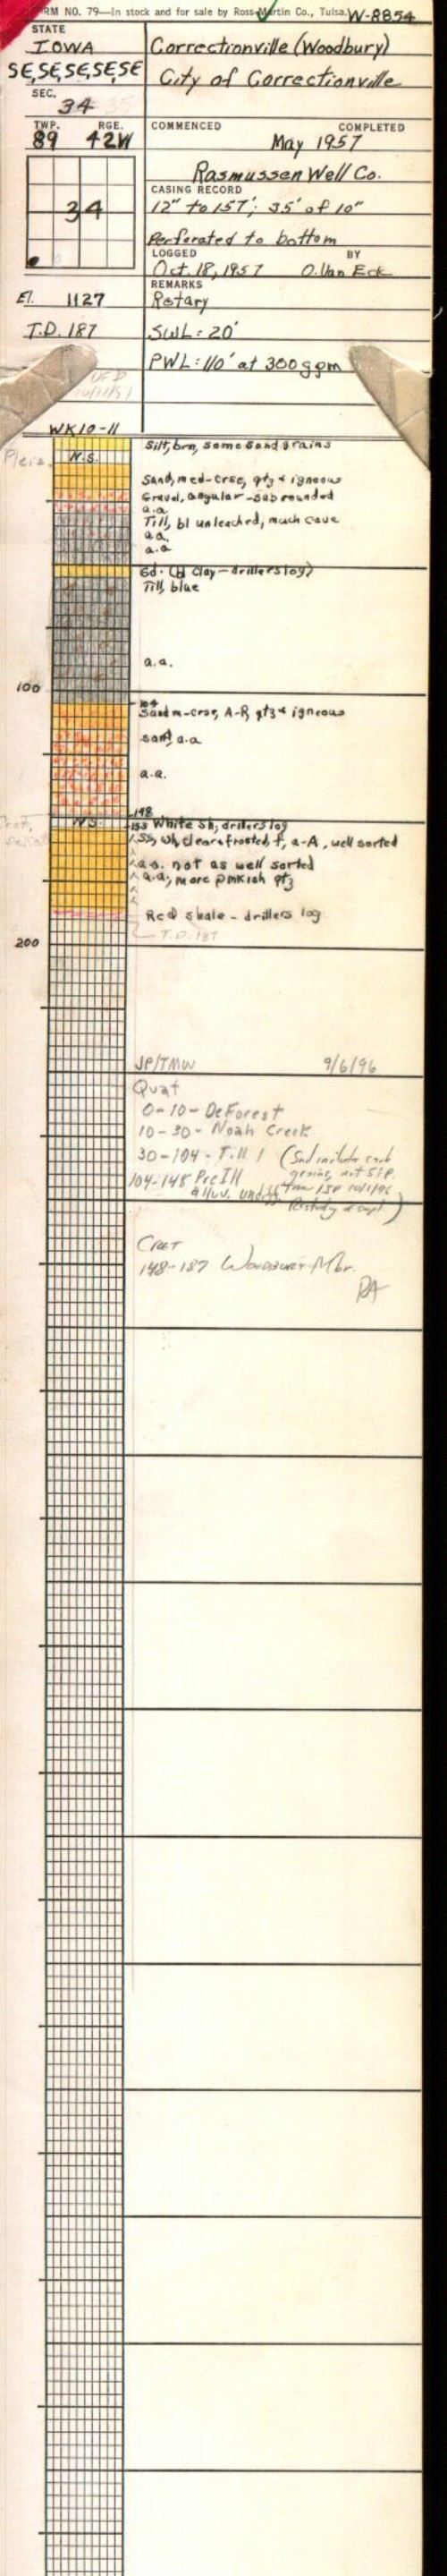 RM NO. 79—In stock and for sale by Ross-Martin Co., Tulsa. W-8854
STATE
IOWA
Correctionville (Woodbury)
SE, SE, SE, SE, SE
City of Correctionville
SEC.
34 35
TWP. RGE.
89 42W
COMMENCED COMPLETED
May 1957
Rasmussen Well Co.
CASING RECORD
12" to 157'; 35' of 10"
34
perforated to bottom
LOGGED BY
Oct. 18, 1957 O. Van Eck
REMARKS
El. 1127
Rotary
T.D. 187
SWL: 20'
PWL: 110' at 300 gpm
10/11/57
WK 10-11
Pleis.
Silt, brn, some sand grains
N.S.
Sand, med-crse, qtz & igneous
Gravel, angular-subrounded
a.a.
Till, bl unleached, much cave
a.a.
a.a.
Gd. (bl clay - drillers log)
Till, blue
a.a.
100
104
Sand m-crse, A-R, qtz & igneous
sand, a.a
a.a.
148
N.S.
153 White Sh, drillers log
SS, wh, clear & frosted, f, a-A, well sorted
a.a. not as well sorted
a.a, more pinkish qtz
Red shale - drillers log
T.D. 187
200
JP/TMW 9/6/96
Quat
0-10- DeForest
10-30- Noah Creek
30-104- Till 1 (Snd include carb
grains, not S.S.P.
104-148 Pre Ill
alluv. undiff
Restudy
Cret
148-187 Woodbury Mbr.
RA